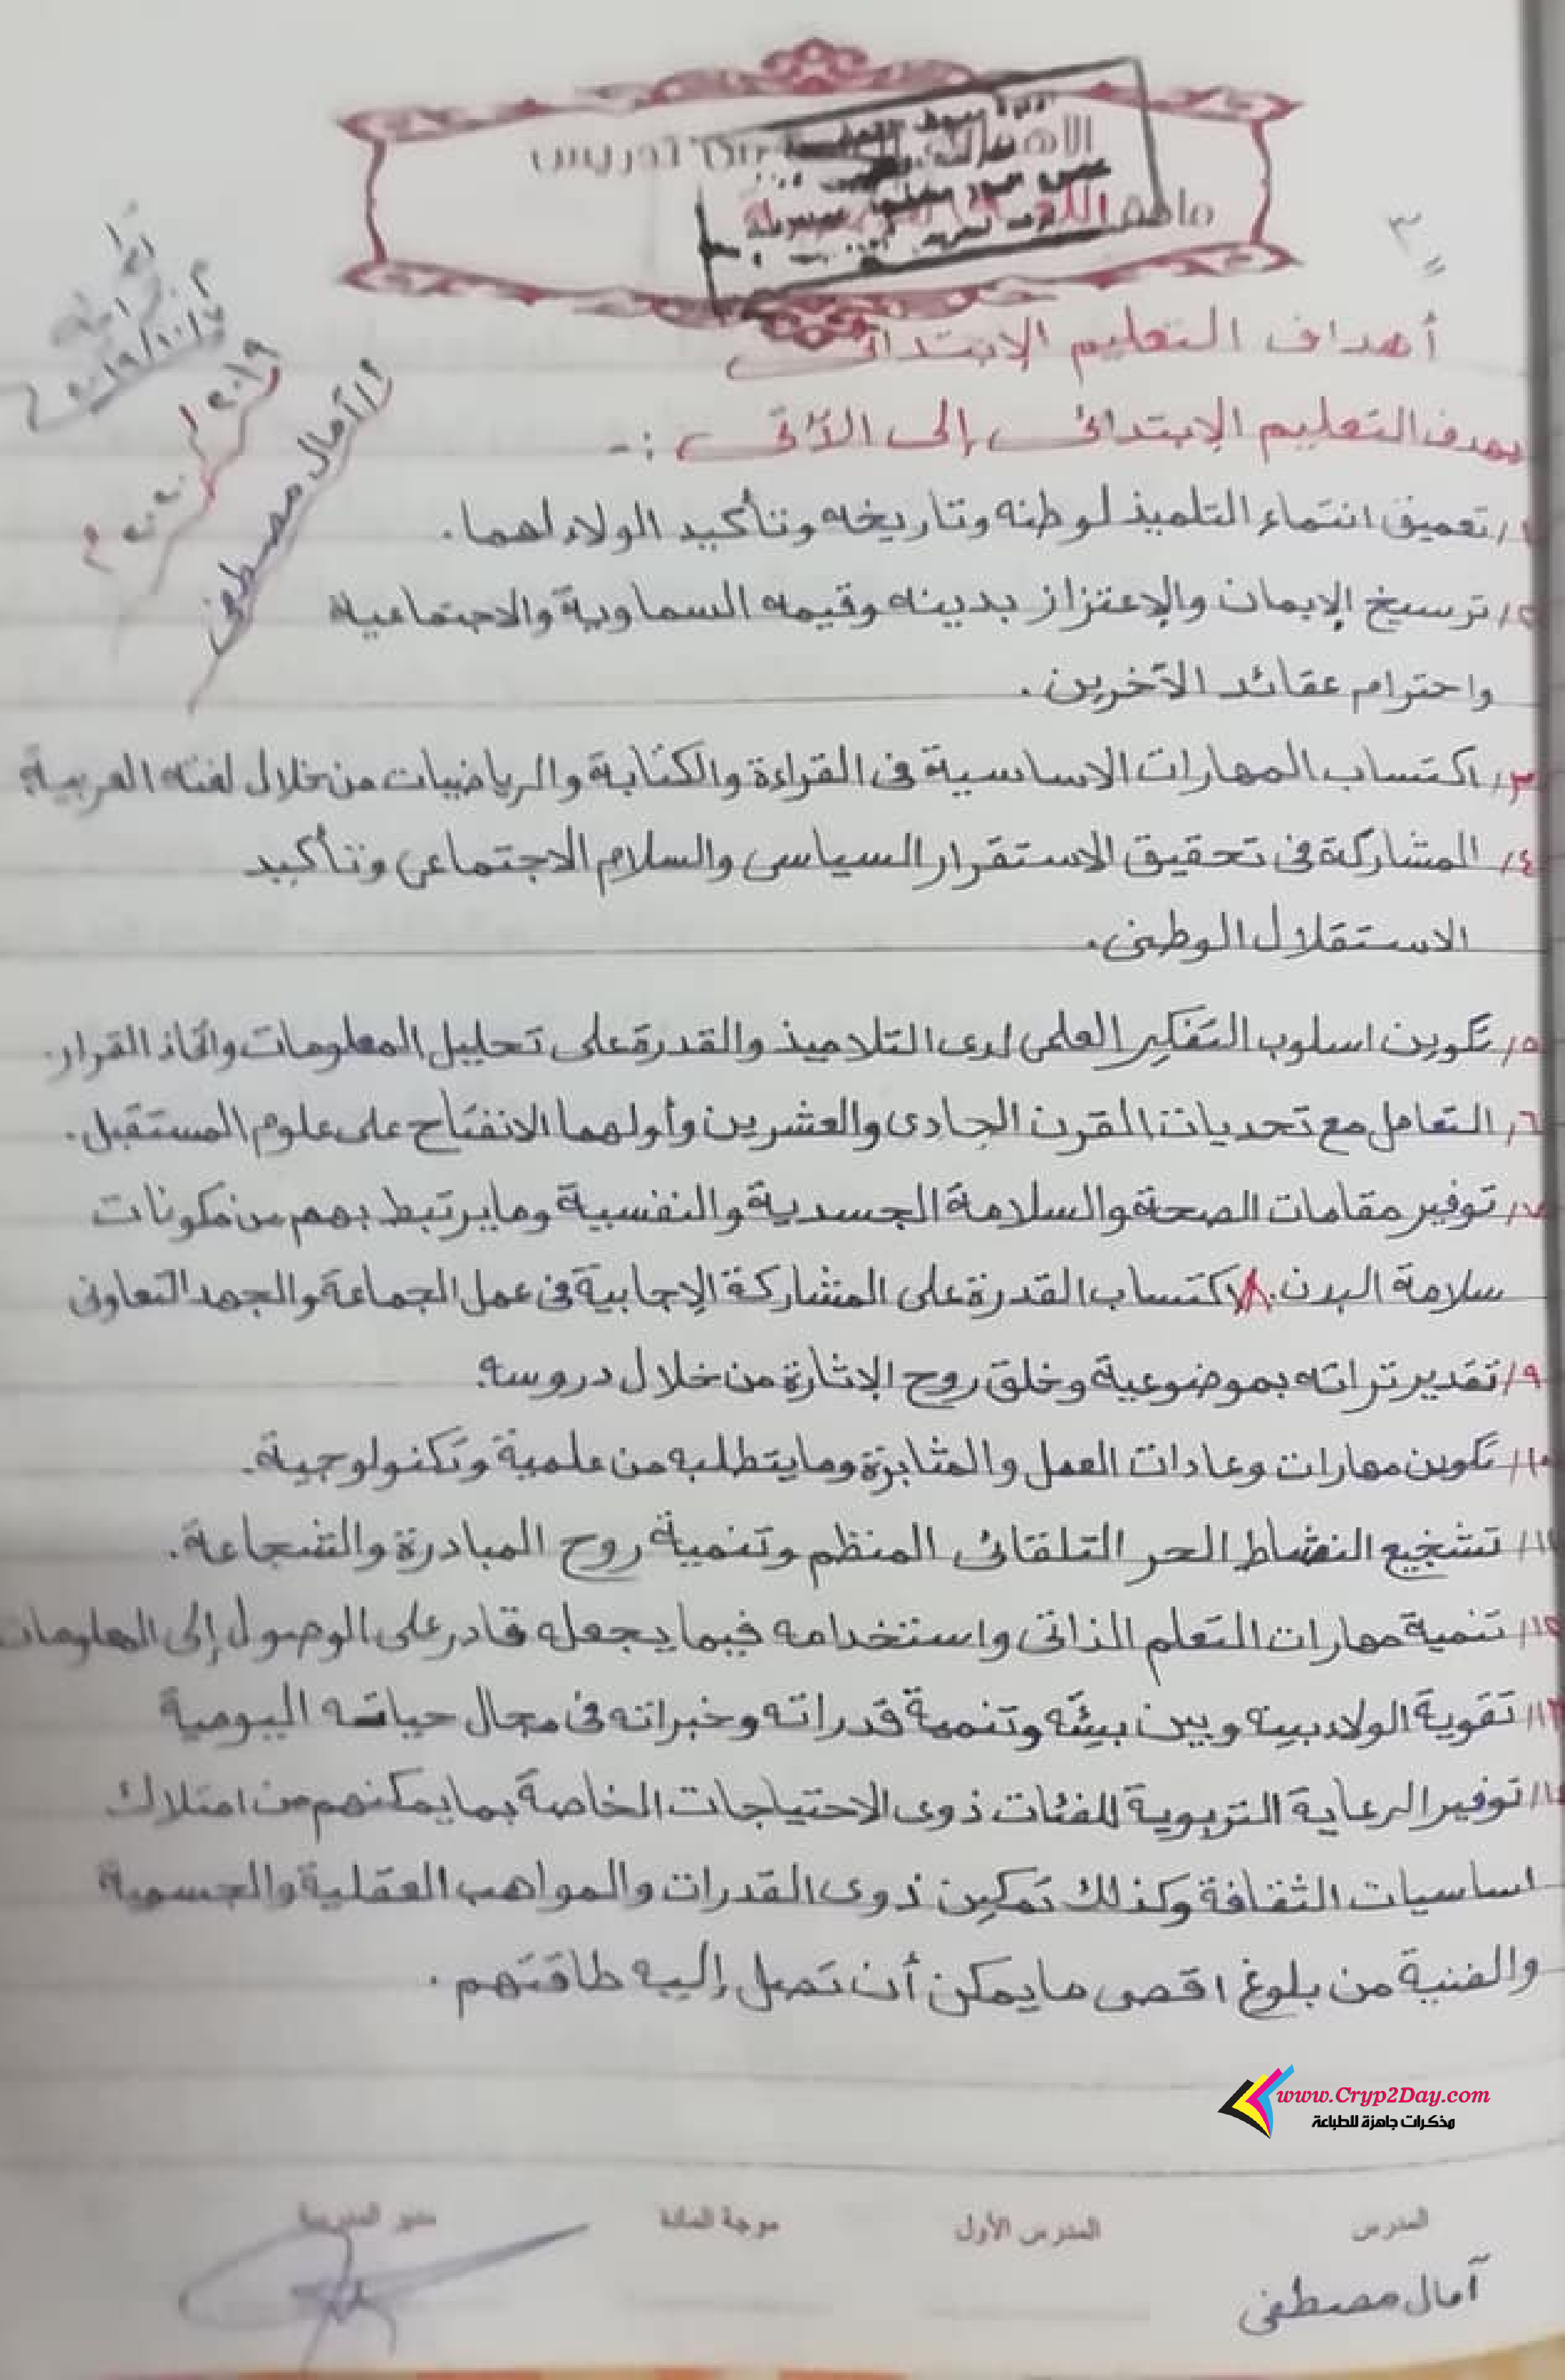 الأهداف العامة من تدريس
مادة اللغة العربية
٣
أهداف التعليم الإبتدائى
يهدف التعليم الإبتدائى إلى الآتى :-
٢٠١٩/١٠/
٢٠١٩
٢٠٢٠ م
أ/ آمال مصطفى
١/ تعميق انتماء التلميذ لوطنه وتاريخه وتأكيد الولاء لهما .
٢/ ترسيخ الإيمان والإعتزاز بدينه وقيمه السماوية والاجتماعية
واحترام عقائد الآخرين .
٣/ اكتساب المهارات الاساسية فى القراءة والكتابة والرياضيات من خلال لغته العربية
٤/ المشاركة فى تحقيق الاستقرار السياسى والسلام الاجتماعى وتأكيد
الاستقلال الوطنى .
٥/ تكوين اسلوب التفكير العلمى لدى التلاميذ والقدرة على تحليل المعلومات واتخاذ القرار .
٦/ التعامل مع تحديات القرن الحادى والعشرين وأولهما الانفتاح على علوم المستقبل .
٧/ توفير مقامات الصحة والسلامة الجسدية والنفسية وما يرتبط بهم من مكونات
سلامة البدن . ٨/ اكتساب القدرة على المشاركة الإجابية فى عمل الجماعة والجهد التعاونى
٩/ تقدير تراثه بموضوعية وخلق روح الإثارة من خلال دروسه .
١٠/ تكوين مهارات وعادات العمل والمثابرة وما يتطلبه من علمية وتكنولوجية .
١١/ تشجيع النشاط الحر التلقائى المنظم وتنمية روح المبادرة والشجاعة .
١٢/ تنمية مهارات التعلم الذاتى واستخدامه فيما يجعله قادر على الوصول إلى المعلومات
١٣/ تقوية الولاء بينه وبين بيئته وتنمية قدراته وخبراته فى مجال حياته اليومية
١٤/ توفير الرعاية التربوية للفئات ذوى الاحتياجات الخاصة بما يمكنهم من امتلاك
اساسيات الثقافة وكذلك تمكين ذوى القدرات والمواهب العقلية والجسمية
والفنية من بلوغ اقصى ما يمكن أن تصل إليه طاقتهم .
www.Cryp2Day.com
مذكرات جاهزة للطباعة
المدرس المدرس الأول موجة المادة مدير المدرسة
آمال مصطفى